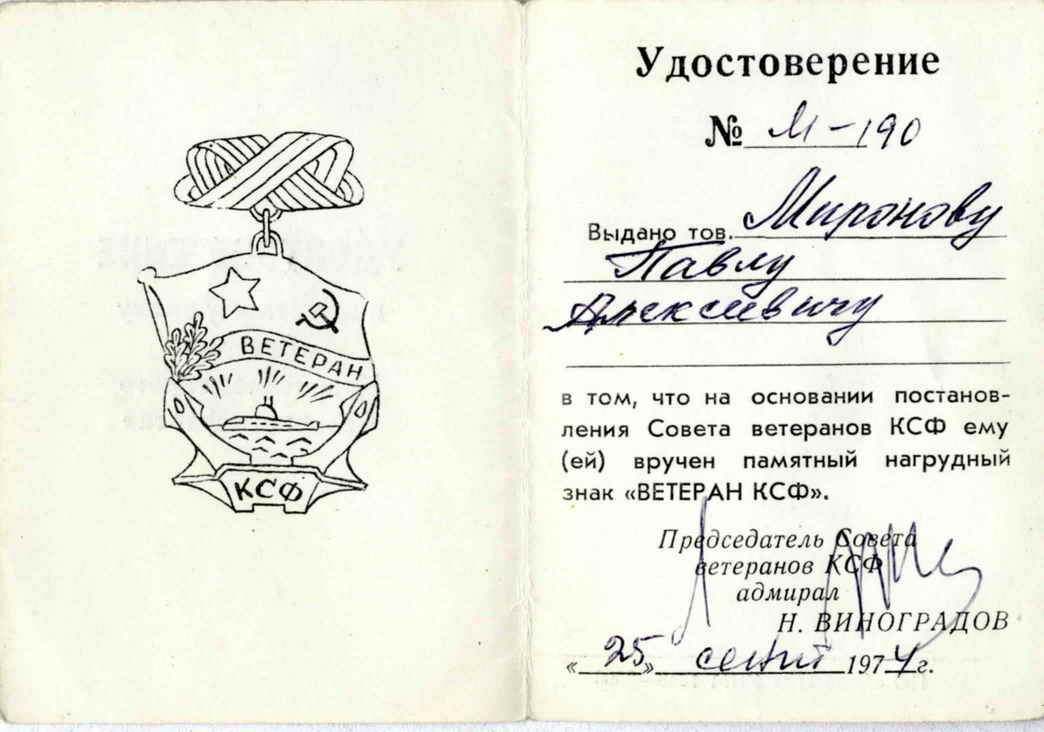 ВЕТЕРАН
КСФ
Удостоверение
№ М-190
Выдано тов. Миронову
Павлу
Алексеевичу
в том, что на основании постанов-
ления Совета ветеранов КСФ ему
(ей) вручен памятный нагрудный
знак «ВЕТЕРАН КСФ».
Председатель Совета
ветеранов КСФ
адмирал
Н. ВИНОГРАДОВ
«25» сент 1974г.